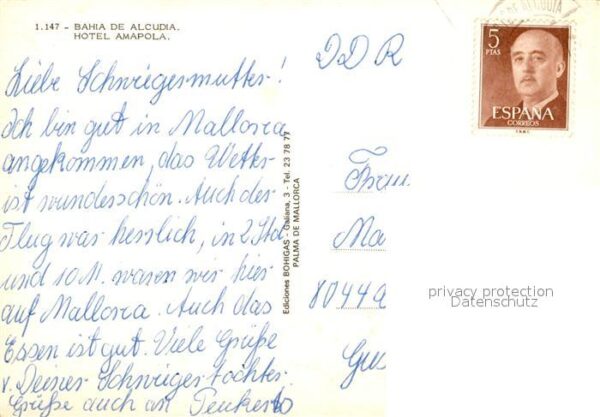 1.147 - BAHIA DE ALCUDIA.
HOTEL AMAPOLA.
Liebe Schwiegermutter!
Ich bin gut in Mallorca
angekommen, das Wetter
ist wunderschön. Auch der
Flug war herrlich, in 2 Std.
und 10 M. waren wir hier
auf Mallorca. Auch das
Essen ist gut. Viele Grüße
v. Deiner Schwiegertochter
Grüße auch an
Ediciones BOHIGAS - Galiana, 3 - Tel. 23 78 77
PALMA DE MALLORCA
DDR
Frau
Ma
8044
privacy protection
Datenschutz
5
PTAS
ESPAÑA
CORREOS
ALCUDIA